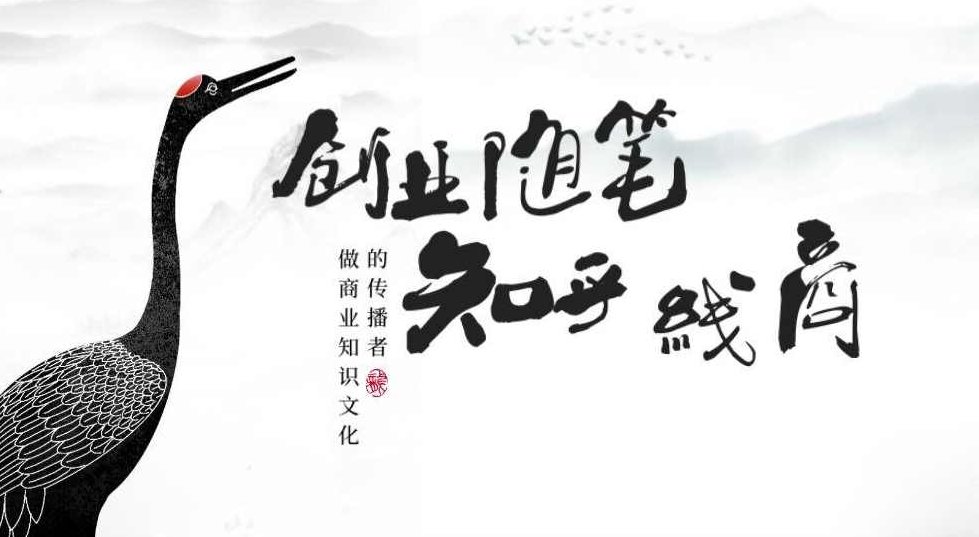 创业随笔
知乎 线商
做商业知识文化
的传播者